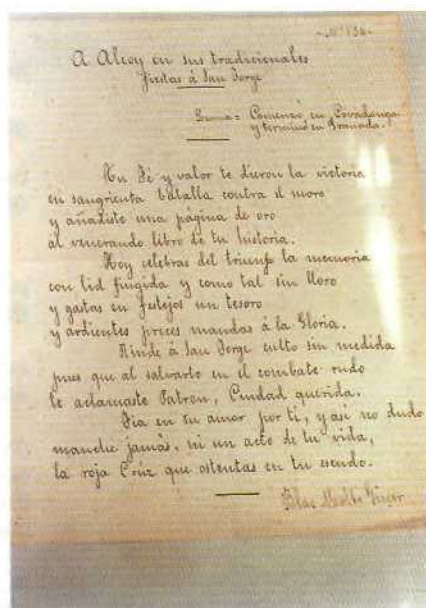 Nº 134
A Alcoy en sus tradicionales
fiestas á San Jorge
Lema = Comenzó en Covadonga
y terminó en Granada.
Tu Fé y valor te dieron la victoria
en sangrienta batalla contra el moro
y añadiste una página de oro
al venerando libro de tu historia.
Hoy celebras del triunfo la memoria
con lid fingida y como tal sin lloro
y gastas en festejos un tesoro
y ardientes preces mandas á la Gloria.
Rinde á San Jorge culto sin medida
pues que al salvarte en el combate rudo
le aclamaste Patrón, Ciudad querida.
Fía en su amor por ti, y así no dudo
manche jamás, ni un acto de tu vida,
la roja Crúz que ostentas en tu escudo.